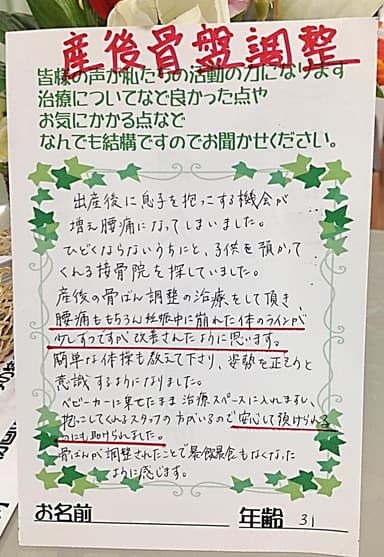 産後骨盤調整
皆様の声が私たちの活動の力になります
治療についてなど良かった点や
お気にかかる点など
なんでも結構ですのでお聞かせください。
出産後に息子を抱っこする機会が
増え腰痛になってしまいました。
ひどくならないうちにと、子供を預かって
くれる接骨院を探していました。
産後の骨ばん調整の治療をして頂き、
腰痛ももちろん妊娠中に崩れた体のラインが
少しずつですが改善されたように思います。
簡単な体操も教えて下り、姿勢を正そうと
意識するようになりました。
ベビーカーに乗せたまま治療スペースに入れますし、
抱っこしてくれるスタッフの方がいるので安心して預けられる
のにも助けられました。
骨ばんが調整されたことで暴飲暴食もなくなった
ように感じます。
お名前
年齢 31